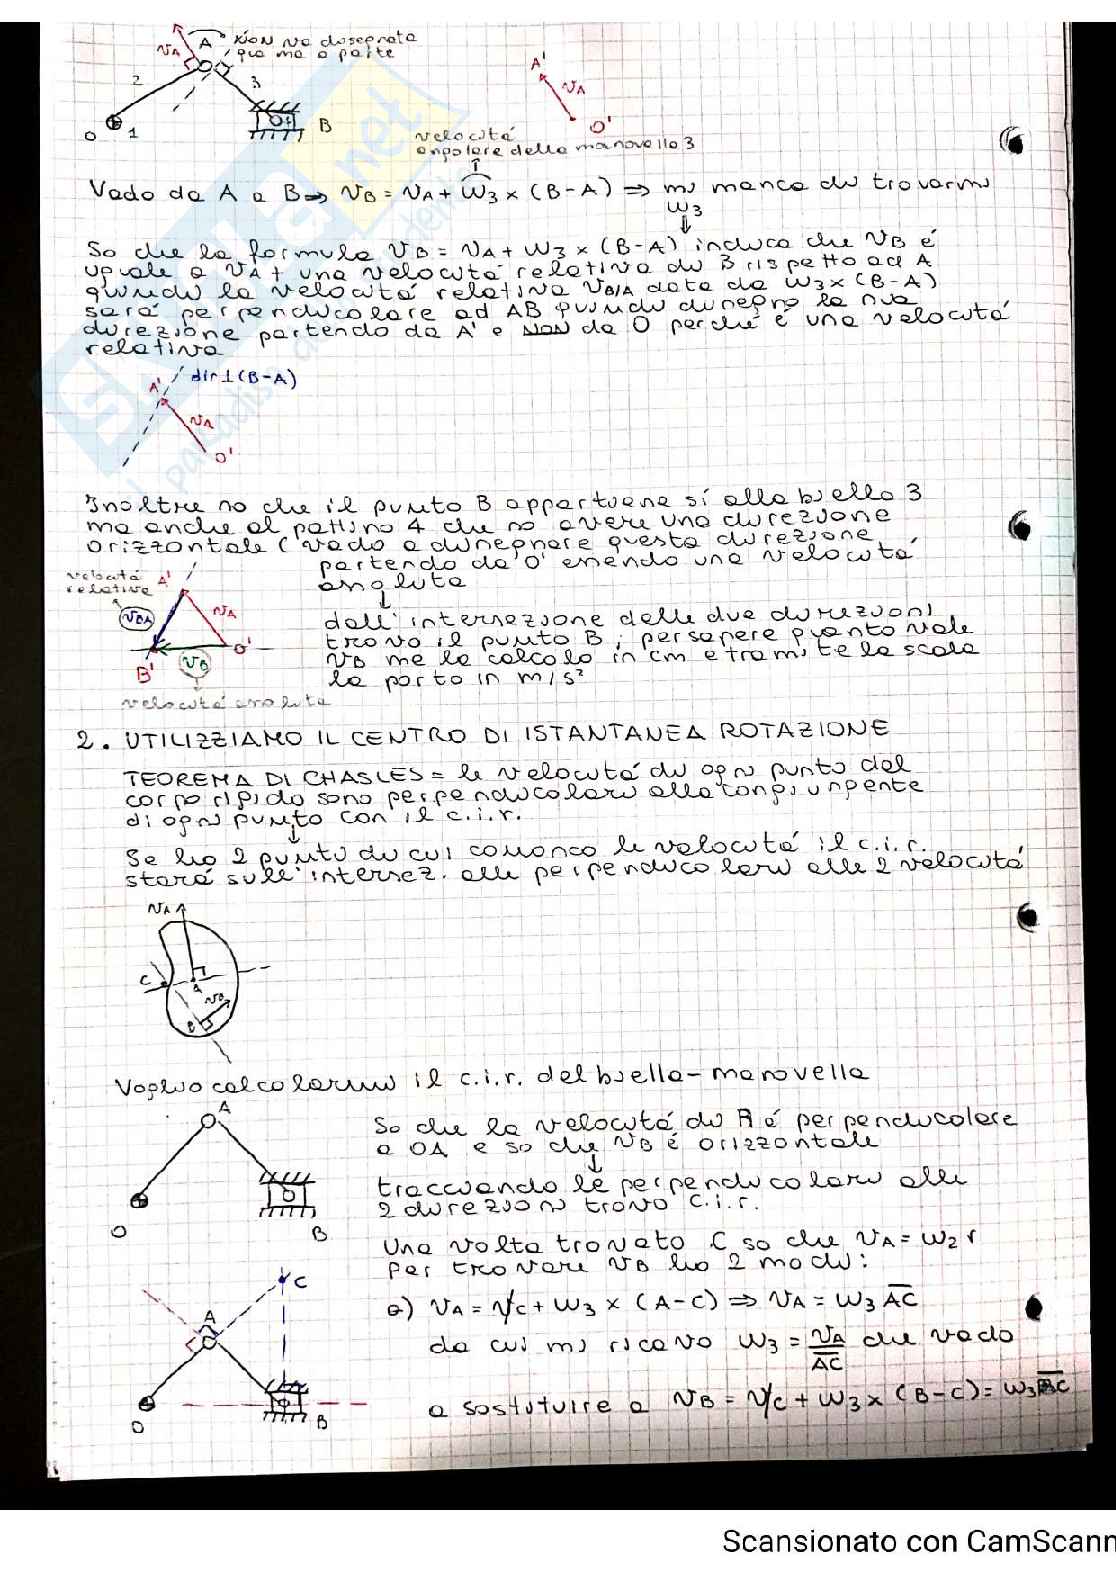 A NON va disegnata
vA qua ma a parte
A'
2 3 vA
O 1 B O'
velocità
angolare della manovella 3
Vado da A a B ⇒ vB = vA + ω3 × (B-A) ⇒ mi manca di trovarmi
ω3
So che la formula vB = vA + ω3 × (B-A) indica che vB è
uguale a vA + una velocità relativa di B rispetto ad A
quindi la velocità relativa vB/A data da ω3 × (B-A)
sarà perpendicolare ad AB quindi disegno la sua
direzione partendo da A' e NON da O perché è una velocità
relativa
A' dir ⊥ (B-A)
vA
O'
Inoltre so che il punto B appartiene sì alla biella 3
ma anche al pattino 4 che so avere una direzione
orizzontale (vado a disegnare questa direzione
partendo da O' essendo una velocità
assoluta
velocità A'
relativa
vBA vA
O'
B' vB
velocità assoluta
dall'intersezione delle due direzioni
trovo il punto B; per sapere quanto vale
vB me la calcolo in cm e tramite la scala
la porto in m/s²
2. UTILIZZIAMO IL CENTRO DI ISTANTANEA ROTAZIONE
TEOREMA DI CHASLES = le velocità di ogni punto del
corpo rigido sono perpendicolari alla congiungente
di ogni punto con il c.i.r.
Se ho 2 punti di cui conosco le velocità il c.i.r.
starà sull'intersez. alle perpendicolari alle 2 velocità
vA
C
A
vB
B
Voglio calcolarmi il c.i.r. del biella-manovella
A
O B
So che la velocità di A è perpendicolare
a OA e so che vB è orizzontale
tracciando le perpendicolari alle
2 direzioni trovo c.i.r.
Una volta trovato C so che vA = ω2 r
per trovare vB ho 2 modi:
C
A
O B
a) vA = vC + ω3 × (A-C) ⇒ vA = ω3 AC
da cui mi ricavo ω3 = vA/AC che vado
a sostituire a vB = vC + ω3 × (B-C) = ω3 BC
Scansionato con CamScann